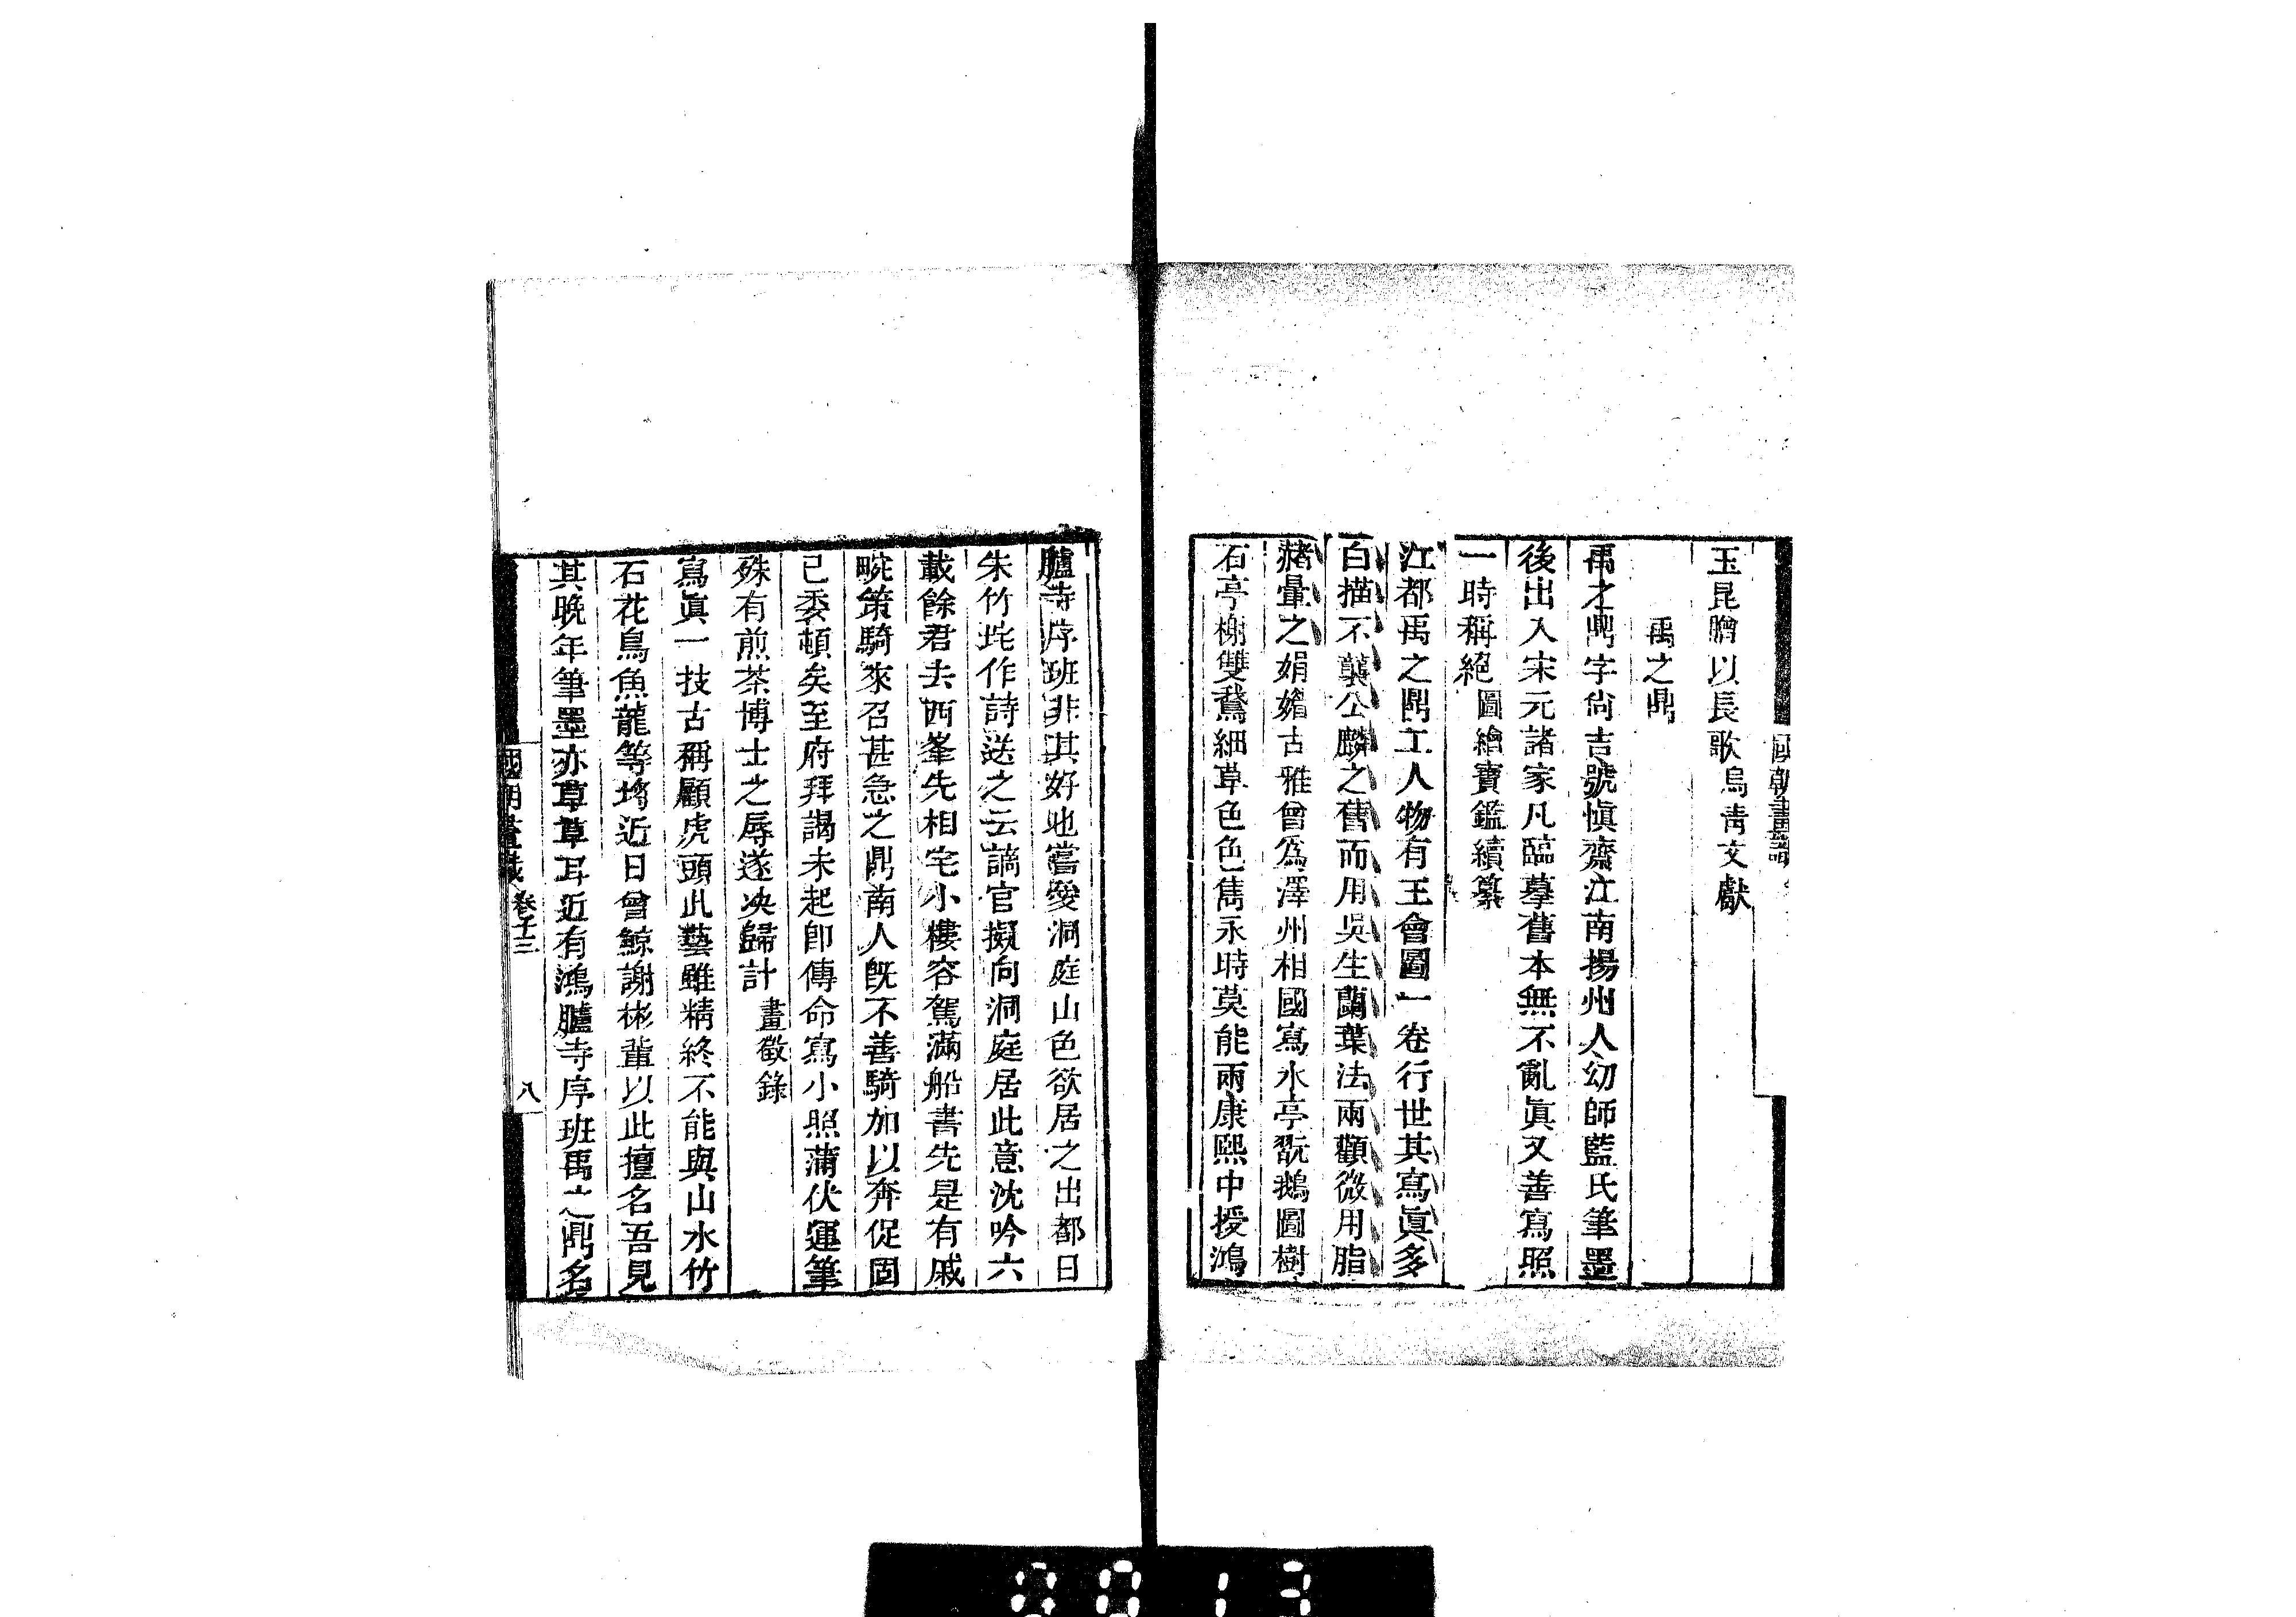 國朝畫識
玉昆贈以長歌烏青文獻
禹之鼎
禹之鼎字尙吉號愼齋江南揚州人幼師藍氏筆墨
後出入宋元諸家凡臨摹舊本無不亂眞又善寫照
一時稱絕圖繪寶鑑續纂
江都禹之鼎工人物有王會圖一卷行世其寫眞多
白描不襲公麟之舊而用吳生蘭葉法兩顴微用脂
赭暈之娟媚古雅曾爲澤州相國寫水亭翫鵝圖樹
石亭榭雙鵞細草色色雋永時莫能兩康熙中授鴻
臚寺序班非其好也嘗愛洞庭山色欲居之出都日
朱竹垞作詩送之云謫官擬向洞庭居此意沈吟六
載餘君去西峯先相宅小樓容駕滿船書先是有戚
畹策騎來召甚急之鼎南人旣不善騎加以奔促固
已委頓矣至府拜謁未起卽傳命寫小照蒲伏運筆
殊有煎茶博士之辱遂决歸計畫徵錄
寫眞一技古稱顧虎頭此藝雖精終不能與山水竹
石花鳥魚龍等埒近日曾鯨謝彬輩以此擅名吾見
其晚年筆墨亦草草耳近有鴻臚寺序班禹之鼎名
國朝畫識
卷十三
八